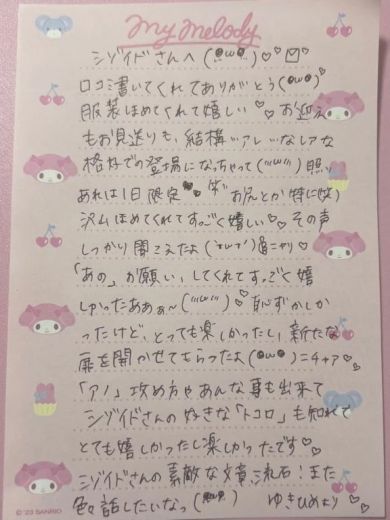 My Melody
シゾイドさんへ (●'ω'●)♡♡✉
口コミ書いてくれてありがとう(●'ω'●)
服装ほめてくれて嬉しい♡♡ お迎え
もお見送りも、結構…アレ…なレアな
格好での登場になっちゃって(''ω'')照
あれは1日限定♥♥笑 お尻とか特に
沢山ほめてくれてすっごく嬉しい♡♡ その声
しっかり聞こえたよ( 'ω' )ニヤリ♡
「あの」お願い、してくれてすっごく嬉
しかったあああぁ〜(''ω'')♡ 恥ずかしか
ったけど、とっても楽しかったし、新たな
扉を開かせてもらったよ(●'ω'●)=ムチャ♡♡
「アソ」攻め方やあんな事も出来て
シゾイドさんの好きな「トコロ」も知れて
とても嬉しかったし楽しかったです♡♡
シゾイドさんの素敵な文章、流石!また
色々話したいなっ(●'ω'●) ゆきひめより
©'23 SANRIO